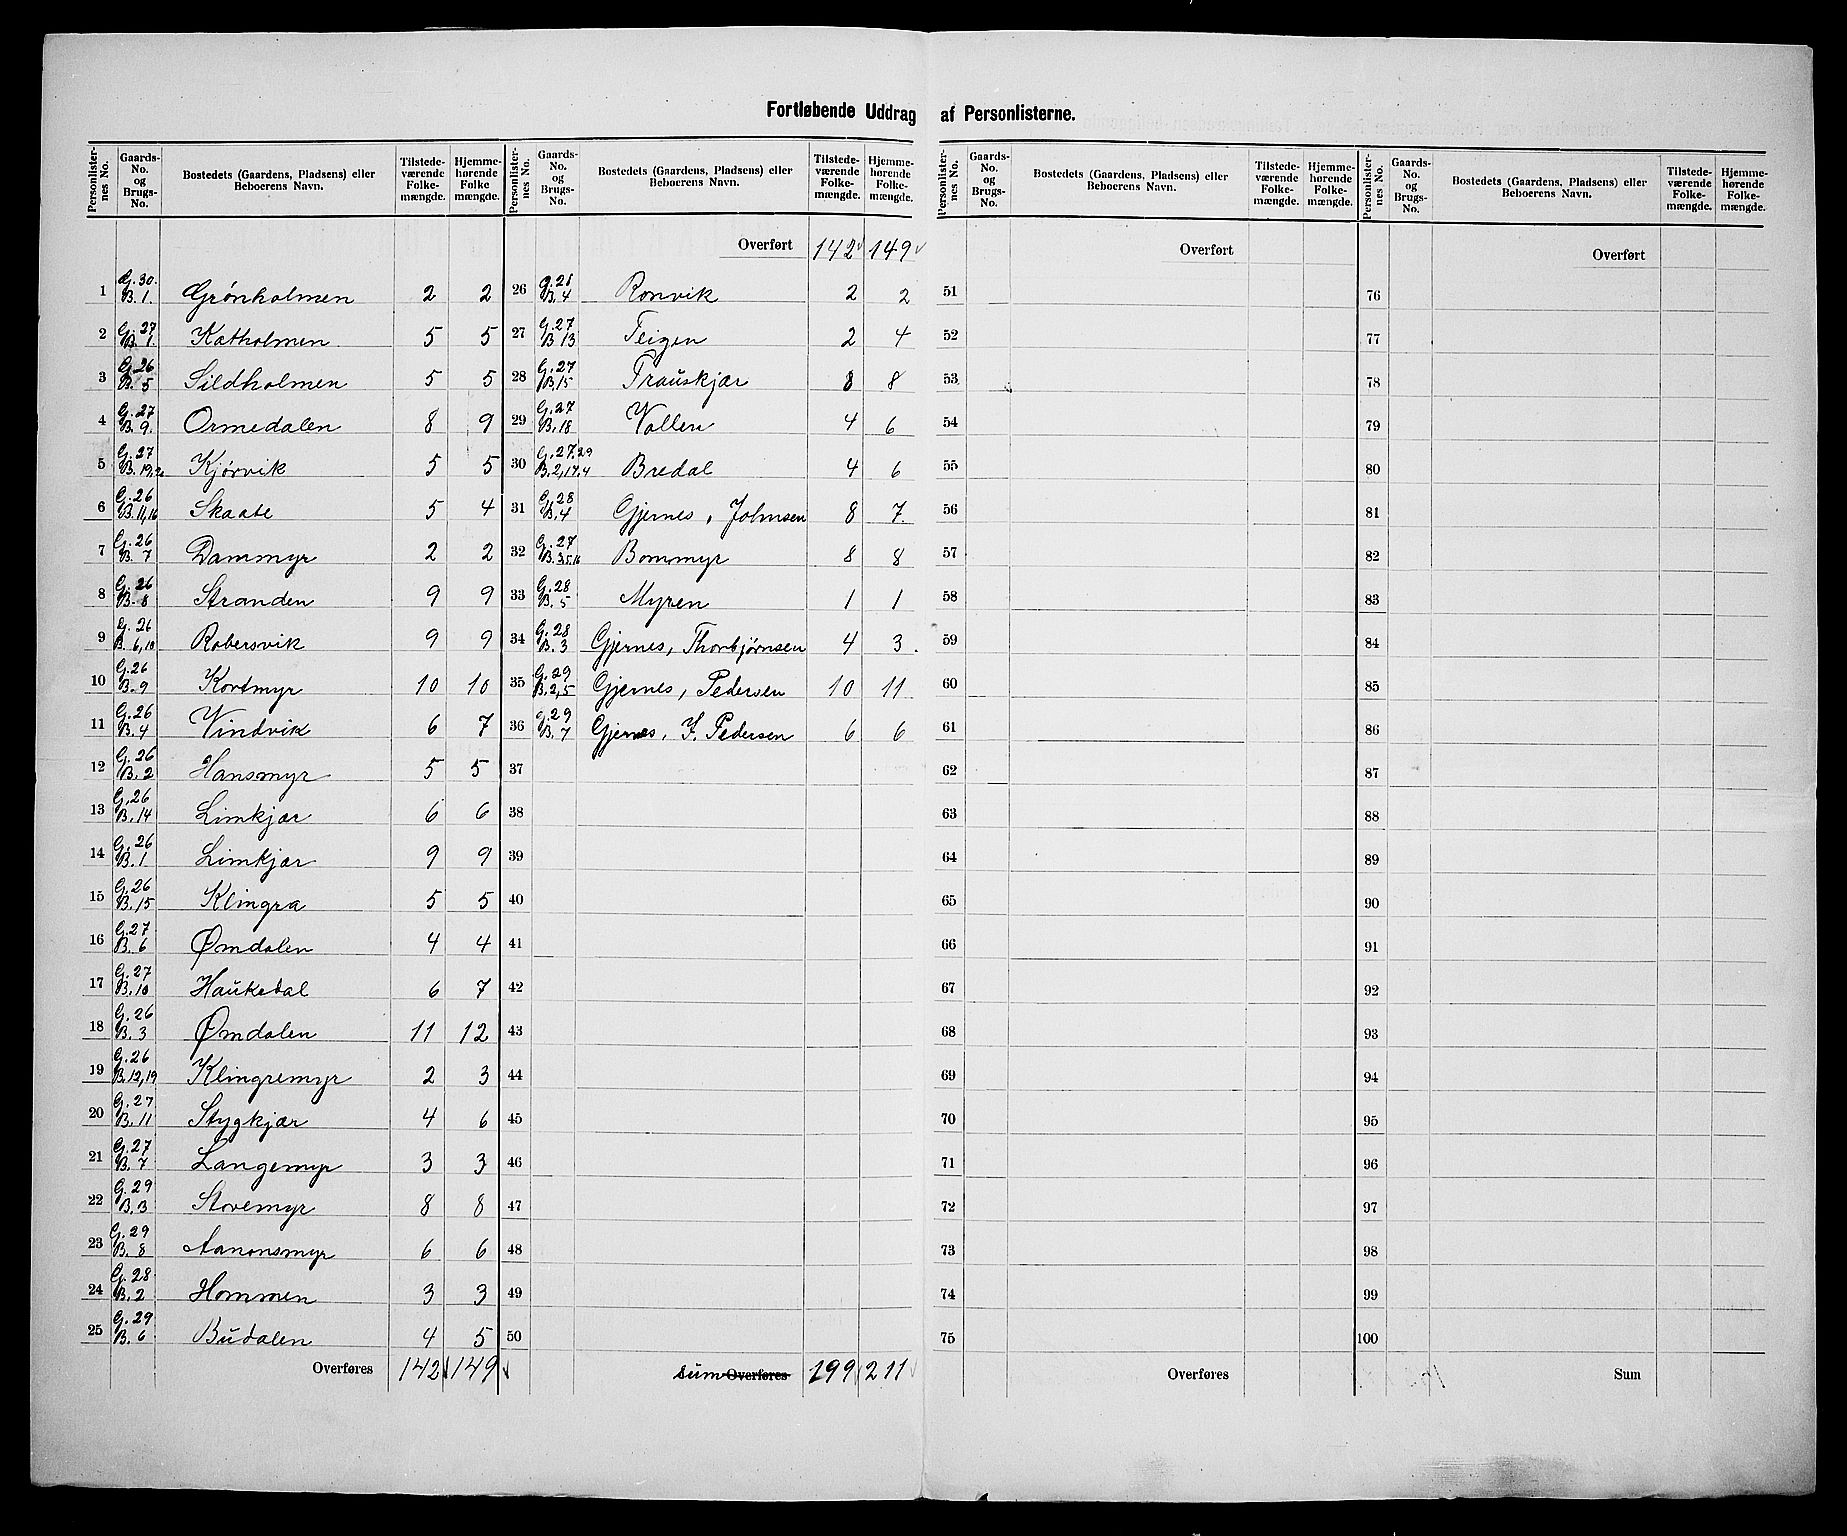 Fortløbende Uddrag af Personlisterne.
Personlister-nes No. | Gaards-No. og Brugs-No. | Bostedets (Gaardens, Pladsens) eller Beboerens Navn. | Tilstede-værende Folke-mængde. | Hjemme-hørende Folke mængde.
1 G. 30. B. 1. Grönholmen 2 2
2 G. 27 B. 1. Katholmen 5 5
3 G. 26 B. 5 Sildholmen 5 5
4 G. 27 B. 9. Ormedalen 8 9
5 G. 27 B. 19, Kjörvik 5 5
6 G. 26 B. 11,16 Skaate 5 4
7 G. 26 B. 7 Dammyr 2 2
8 G. 26 B. 8 Stranden 9 9
9 G. 26 B. 6,10 Robersvik 9 9
10 G. 26 B. 9 Kortmyr 10 10
11 G. 26 B. 4 Vindvik 6 7
12 G. 26 B. 2 Hansmyr 5 5
13 G. 26 B. 14 Limkjær 6 6
14 G. 26 B. 1 Limkjær 9 9
15 G. 26 B. 15 Klingra 5 5
16 G. 27 B. 6 Ømdalen 4 4
17 G. 27 B. 10 Haukedal 6 7
18 G. 26 B. 3 Ømdalen 11 12
19 G. 26 B. 12,19 Klingremyr 2 3
20 G. 27 B. 11 Stygkjær 4 6
21 G. 27 B. 7 Langemyr 3 3
22 G. 29 B. 3 Storemyr 8 8
23 G. 29 B. 8 Aanonsmyr 6 6
24 G. 28 B. 2 Hommen 3 3
25 G. 29 B. 6 Budalen 4 5
Overføres 142 149
Personlister-nes No. | Gaards-No. og Brugs-No. | Bostedets (Gaardens, Pladsens) eller Beboerens Navn. | Tilstede-værende Folke-mængde. | Hjemme-hørende Folke-mængde.
Overført 142 149
26 G. 28 B. 4 Ronvik 2 2
27 G. 27 B 13 Teigen 2 4
28 G. 27 B. 15 Trauskjær 8 8
29 G. 27 B. 18 Vollen 4 6
30 G. 27, 29 B. 2, 17, 4 Bredal 4 6
31 G. 28 B. 4 Gjernes, Johnsen 8 7.
32 G. 27 B. 3,5,16 Bommyr 8 8
33 G. 28 B. 5 Myren 1 1
34 G. 28 B. 3 Gjernes, Thorbjørnsen 4 3.
35 G. 29 B. 2,5 Gjernes, Pedersen 10 11
36 G. 29 B. 7 Gjernes, J. Pedersen 6 6
37
38
39
40
41
42
43
44
45
46
47
48
49
50
sum Overføres 199 211
Personlister-nes No. | Gaards-No. og Brugs-No. | Bostedets (Gaardens, Pladsens) eller Beboerens Navn. | Tilstede-værende Folke-mængde. | Hjemme-hørende Folke-mængde.
Overført
51
52
53
54
55
56
57
58
59
60
61
62
63
64
65
66
67
68
69
70
71
72
73
74
75
Overføres
Personlister-nes No. | Gaards-No. og Brugs-No. | Bostedets (Gaardens, Pladsens) eller Beboerens Navn. | Tilstede-værende Folke-mængde. | Hjemme-hørende Folke-mængde.
Overført
76
77
78
79
80
81
82
83
84
85
86
87
88
89
90
91
92
93
94
95
96
97
98
99
100
Sum